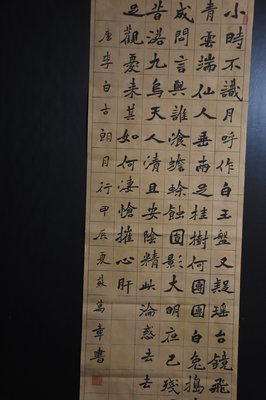 小時不識月呼作白玉盤又疑瑤台鏡飛
青雲端仙人垂兩足桂樹何團團白兔搗
成問言與誰飡蟾蜍蝕圓影大明夜已殘
昔落九烏天人清且安陰精此淪惑去去
足觀憂来其如何悽愴摧心肝
唐李白古朗月行甲辰夏蘇萬章書